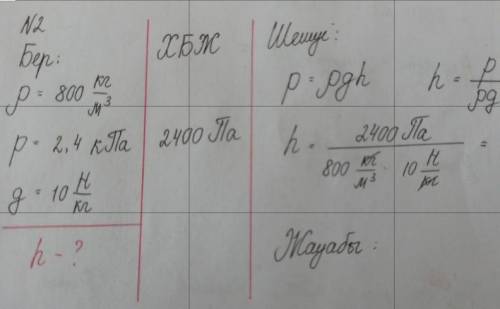 N2
Бер:
ρ = 800 кг/м³
p = 2,4 кПа
g = 10 Н/кг
h - ?
ХБЖ
2400 Па
Шешуі:
p = ρgh h = p/ρg
h = 2400 Па / 800 кг/м³ · 10 Н/кг =
Жауабы: